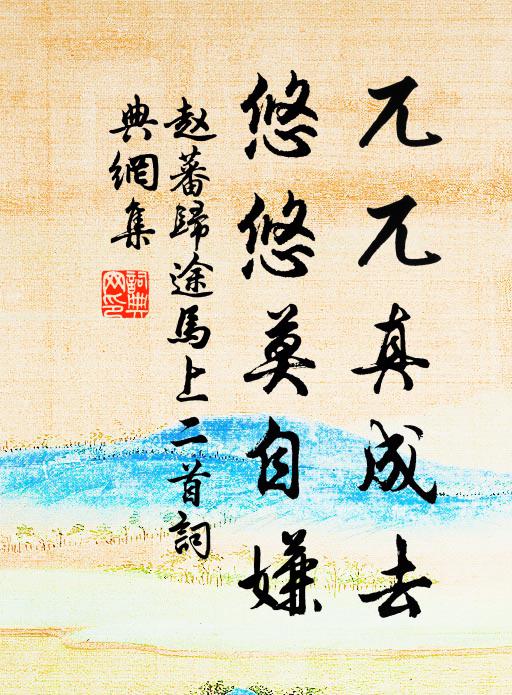 兀兀真成去
悠悠莫自嫌
赵蕃歸途馬上二首詞
典網集
詞典
网印